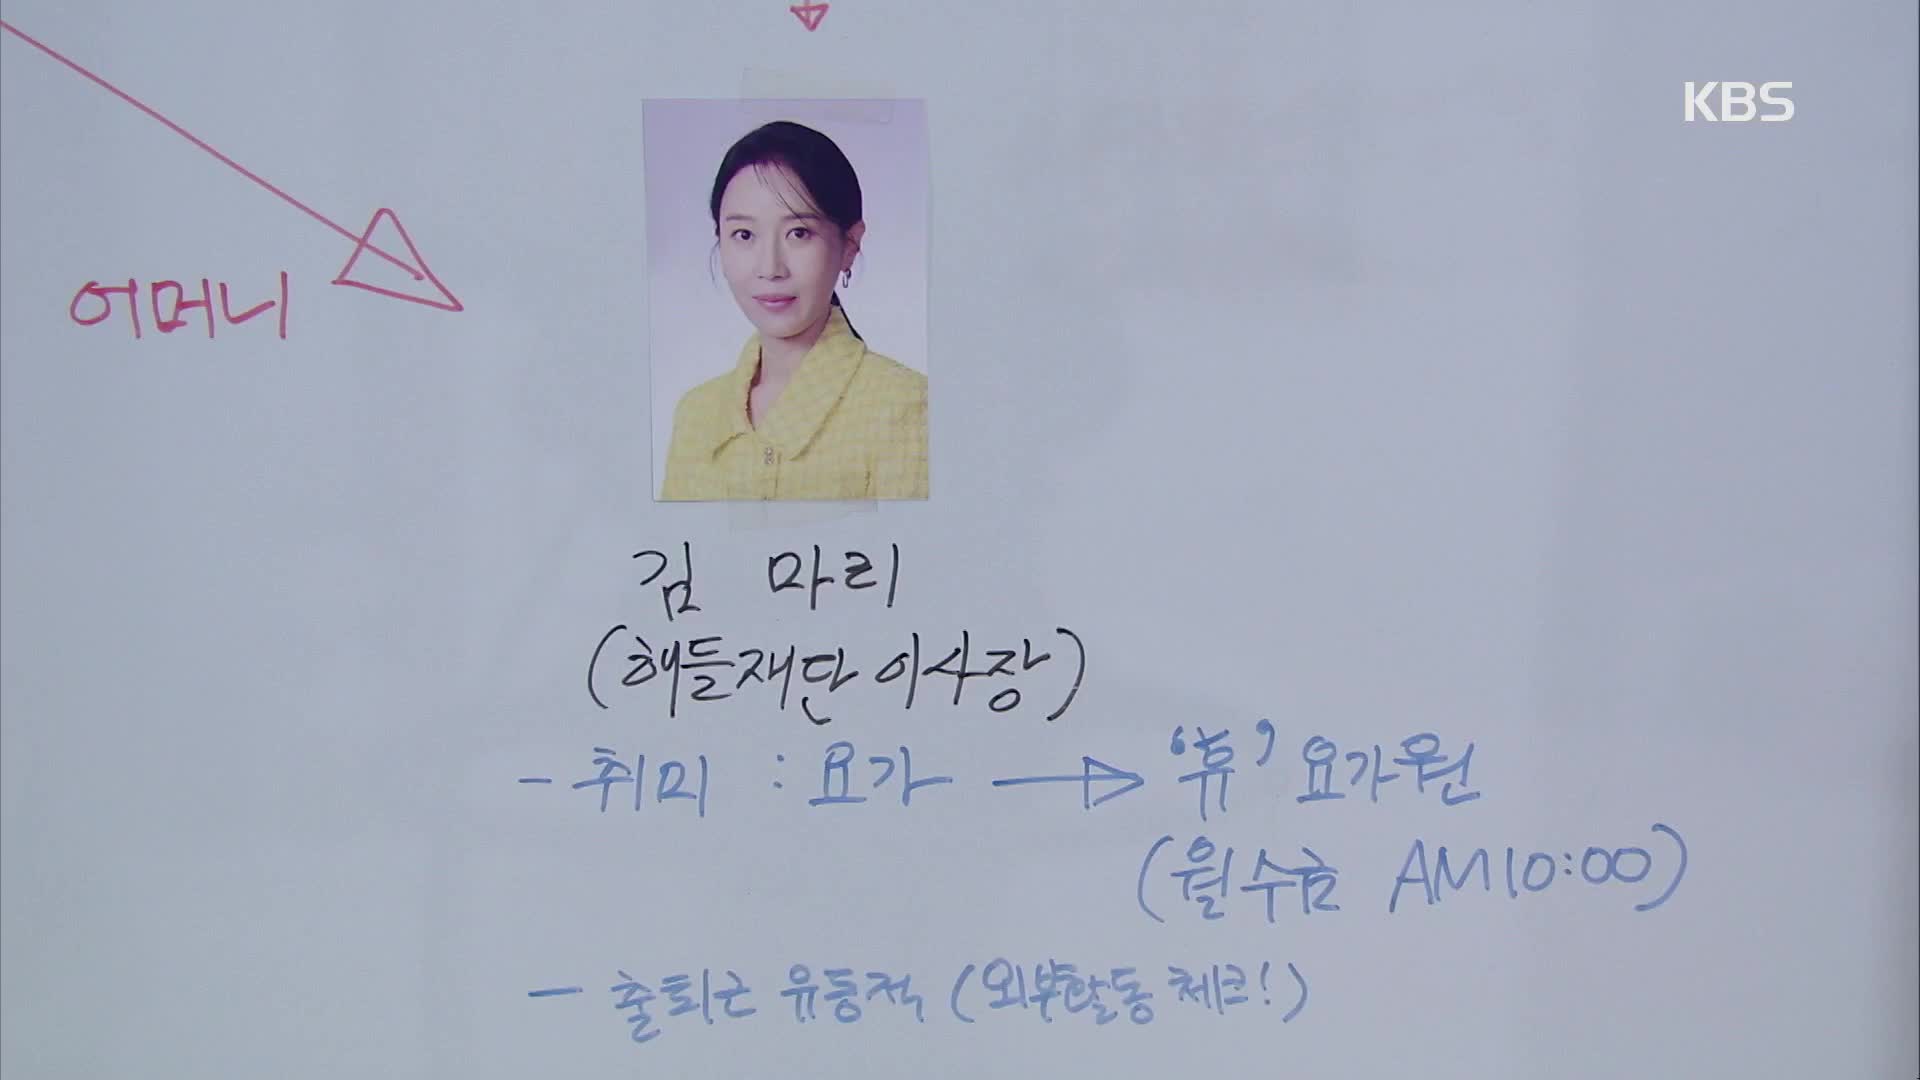 KBS
어머니
김 마리
(해들재단 이사장)
- 취미 : 요가 → '휴' 요가원
(월수금 AM10:00)
- 출퇴근 유동적 (외부활동 체크!)